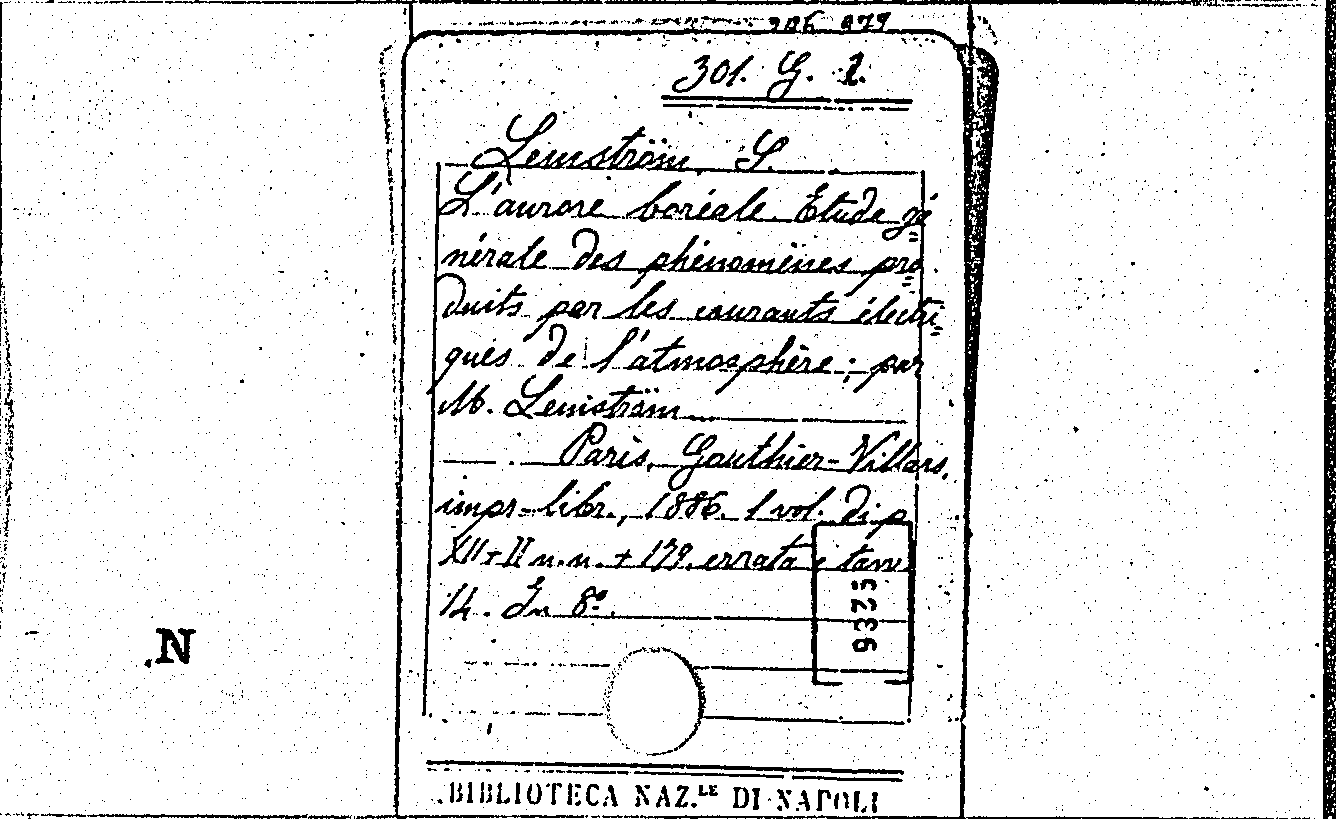 206 979
301. G. 2.
Lemström, S.
L'aurore boréale. Etude gé=
nérale des phénomènes pro=
duits par les courants électri=
ques de l'atmosphère; par
M. Lemström
Paris, Gauthier-Villars,
impr-libr., 1886. 1 vol. di p
XII+II n.n. + 179. errata e tav.
14. In 8°.
9335
N
BIBLIOTECA NAZ.LE DI NAPOLI